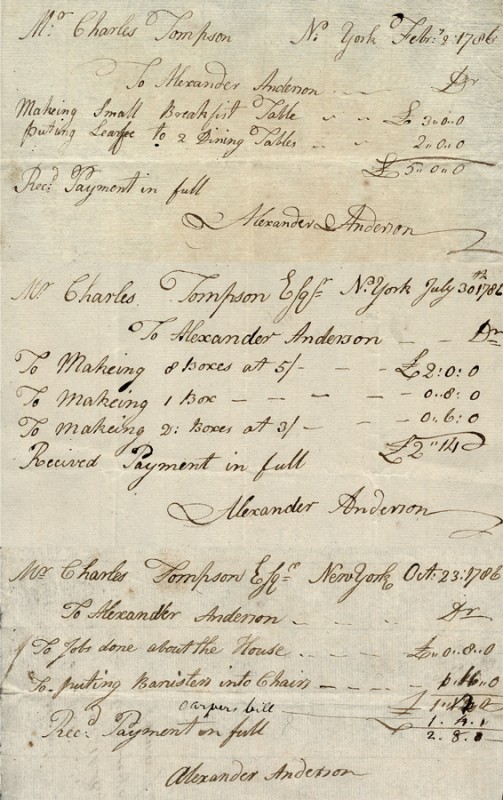 Mr. Charles Tompson N. York Febr.y 2: 1786
To Alexander Anderson Dr
Makeing Small Breakfist Table £ 3"0"0
puting Leafe to 2 Dining Tables 2"0"0
£ 5"0"0
Rec.d Payment in full
Alexander Anderson
Mr. Charles Tompson Esq.r N. York July 30th 1786
To Alexander Anderson Dr
To Makeing 8 Boxes at 5/ - £2:0:0
To Makeing 1 Box 0"8:0
To Makeing 2: Boxes at 3/ - 0"6:0
£2"14
Recived Payment in full
Alexander Anderson
Mr Charles Tompson Esq.r New York Oct. 23: 1786
To Alexander Anderson Dr
To Jobs done about the House £"0"8"0
To puting Banisters into Chairs 16"0
Carpers bill £ 1"
Rec.d Payment in full 1.4.
2.8.0
Alexander Anderson